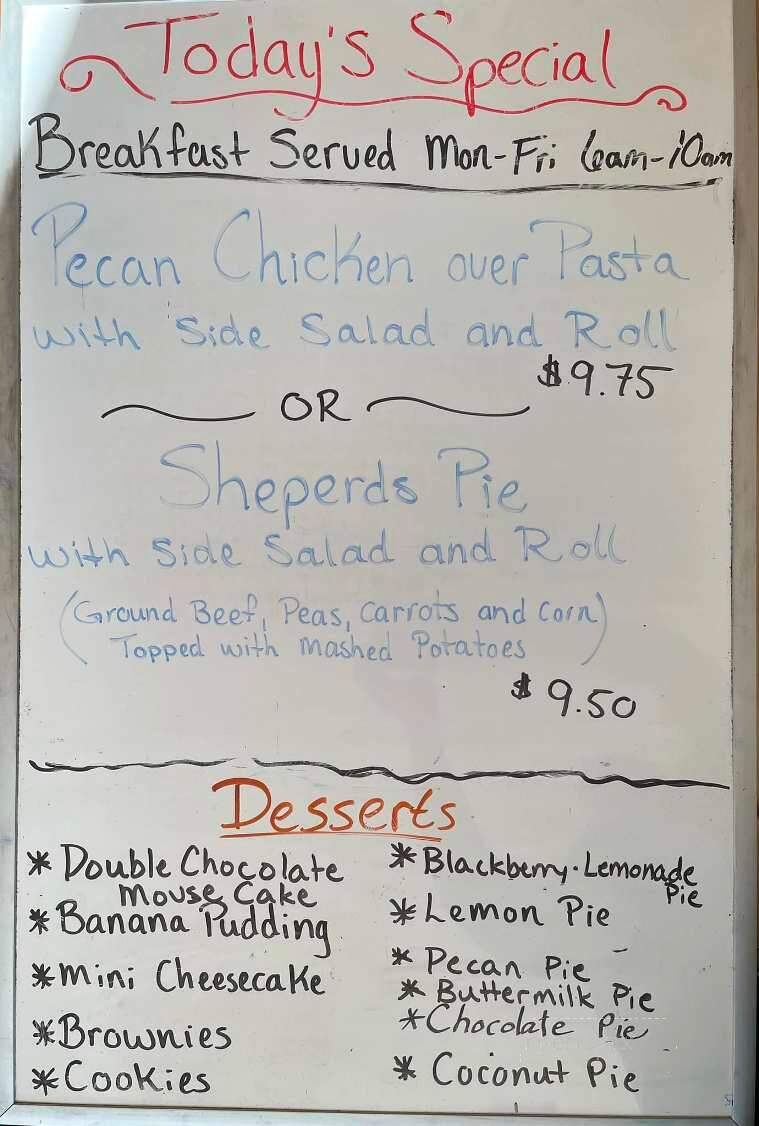 Today's Special
Breakfast Served Mon-Fri 6am-10am
Pecan Chicken over Pasta
with Side Salad and Roll
$9.75
OR
Sheperds Pie
with Side Salad and Roll
(Ground Beef, Peas, Carrots and Corn)
Topped with Mashed Potatoes
$9.50
Desserts
* Double Chocolate
Mouse Cake
* Banana Pudding
* Mini Cheesecake
* Brownies
* Cookies
* Blackberry-Lemonade
Pie
* Lemon Pie
* Pecan Pie
* Buttermilk Pie
* Chocolate Pie
* Coconut Pie